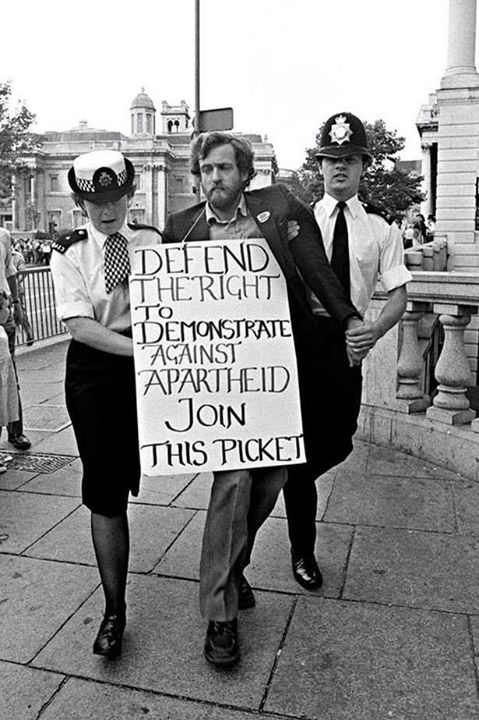 DEFEND
THE RIGHT
TO
DEMONSTRATE
AGAINST
APARTHEID
JOIN
THIS PICKET